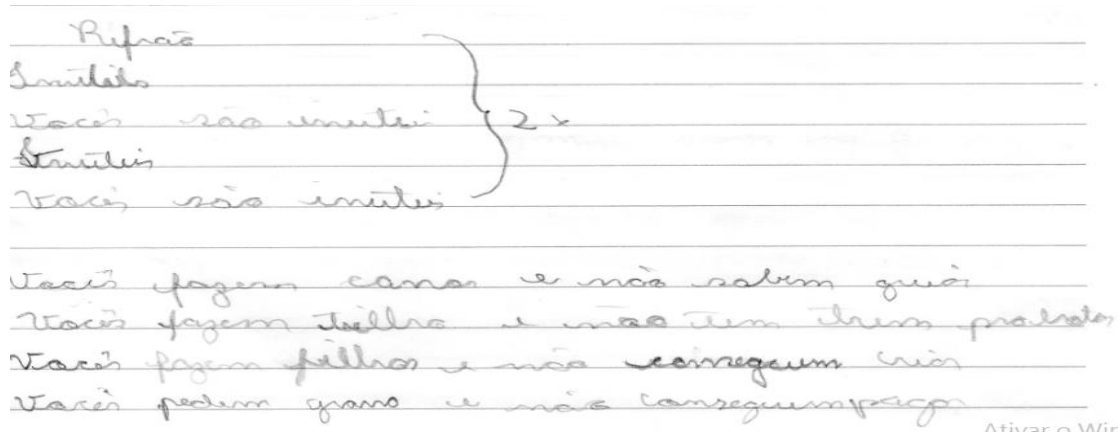 Refrão
Inúteis
Vocês são inutei
Inúteis
Vocês são inúteis
2 x
Vocês fazem carros e não sabem guiar
Vocês fazem trilho e não tem trem prabotar
Vocês fazem filhos e não conseguem criar
Vocês pedem grana e não conseguem pagar
Ativar o Win